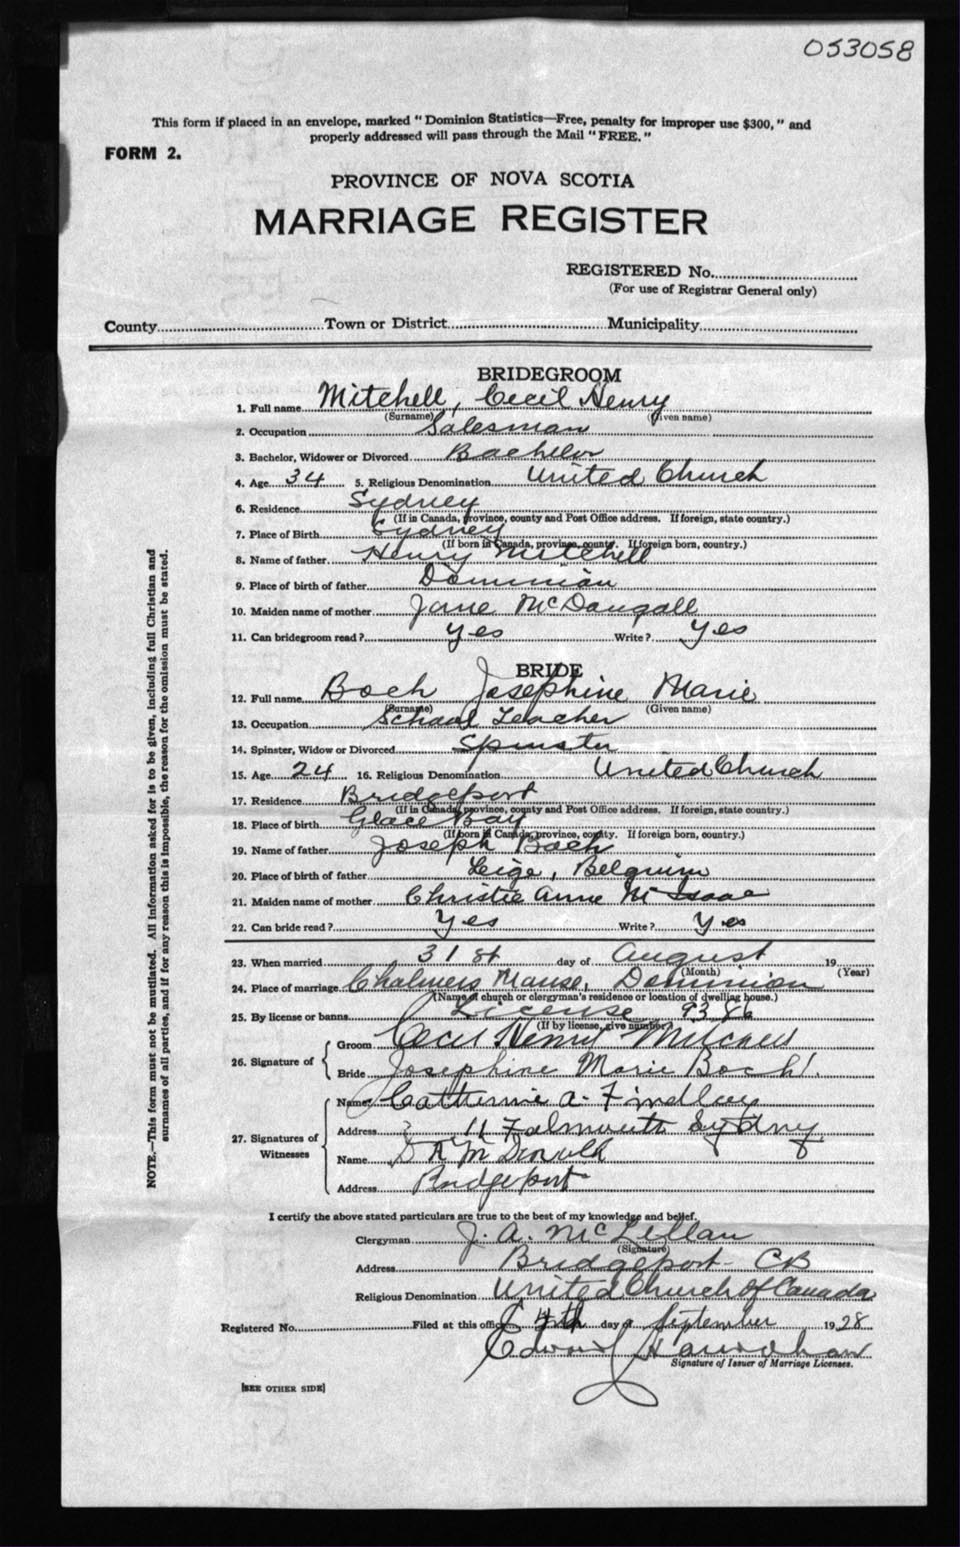 053058
This form if placed in an envelope, marked "Dominion Statistics—Free, penalty for improper use $300," and
properly addressed will pass through the Mail "FREE."
FORM 2.
PROVINCE OF NOVA SCOTIA
MARRIAGE REGISTER
REGISTERED No.
(For use of Registrar General only)
County Town or District Municipality
BRIDEGROOM
1. Full name Mitchell, Cecil Henry
(Surname) (Given name)
2. Occupation Salesman
3. Bachelor, Widower or Divorced Bachelor
4. Age 34 5. Religious Denomination United Church
6. Residence Sydney
(If in Canada, province, county and Post Office address. If foreign, state country.)
7. Place of Birth Sydney
(If born in Canada, province, county. If foreign born, country.)
8. Name of father Henry Mitchell
9. Place of birth of father Dominion
10. Maiden name of mother Jane McDougall
11. Can bridegroom read? Yes Write? Yes
BRIDE
12. Full name Boch Josephine Marie
(Surname) (Given name)
13. Occupation School Teacher
14. Spinster, Widow or Divorced Spinster
15. Age 24 16. Religious Denomination United Church
17. Residence Bridgeport
(If in Canada, province, county and Post Office address. If foreign, state country.)
18. Place of birth Glace Bay
(If born in Canada, province, county. If foreign born, country.)
19. Name of father Joseph Boch
20. Place of birth of father Leige, Belguim
21. Maiden name of mother Christie Anne McIsaac
22. Can bride read? Yes Write? Yes
23. When married 31st day of August 19
(Month) (Year)
24. Place of marriage Chalmers Manse, Dominion
(Name of church or clergyman's residence or location of dwelling house.)
25. By license or banns License 9386
(If by license, give number)
26. Signature of Groom Cecil Henry Mitchell
Bride Josephine Marie Boch
27. Signatures of Witnesses Name Catherine A. Findlay
Address 11 Falmouth Sydney
Name
Address Bridgeport
I certify the above stated particulars are true to the best of my knowledge and belief.
Clergyman J. A. McLellan
(Signature)
Address Bridgeport CB
Religious Denomination United Church of Canada
Registered No. Filed at this office 4th day of September 1928
Edward
Signature of Issuer of Marriage Licenses.
[SEE OTHER SIDE]
NOTE.—This form must not be mutilated. All information asked for is to be given, including full Christian and
surnames of all parties, and if for any reason this is impossible, the reason for the omission must be stated.